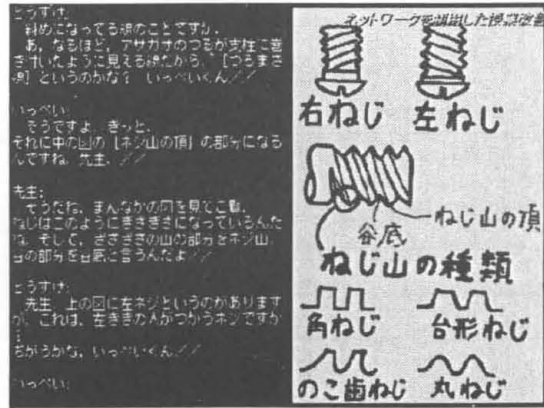 とうすけ:
斜めになってる線のことですか.
あ, なるほど, アサガオのつるが支柱に巻
きついたように見える線だから, 「つるまき
線」というのかな? いっぺいくん//
いっぺい:
そうですよ きっと.
それに中の図の「ネジ山の頂」の部分になる
んですね, 先生. //
先生:
そうだね, まんなかの図を見てご覧.
ねじはこのようにぎざぎざになっているんだ
ね. そして, ぎざぎざの山の部分をネジ山,
谷の部分を谷底と言うんだよ//
とうすけ:
先生 上の図に左ネジというのがあります
が, これは, 左ききの人がつかうネジですか
:
ちがうかな, いっぺいくん//
いっぺい:
ネットワークを利用した授業改善
右ねじ 左ねじ
ねじ山の頂
谷底
ねじ山の種類
角ねじ 台形ねじ
のこ歯ねじ 丸ねじ